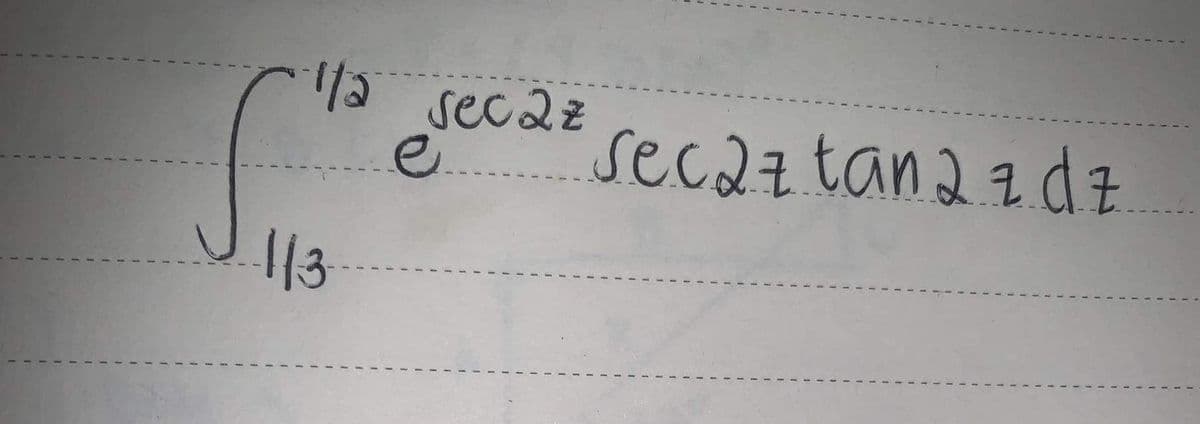 ∫_{1/3}^{1/2} e^{sec2z} sec2z tan2z dz